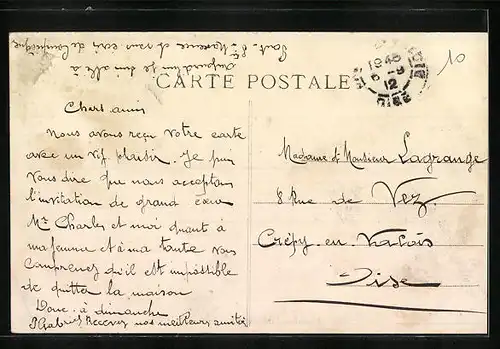 CARTE POSTALE
10
Chers amis
Nous avons reçu votre carte
avec un vif plaisir. Je puis
vous dire que nous acceptons
l'invitation de grand cœur
Mr Charles et moi quant à
ma femme et à ma tante vous
comprenez qu'il est impossible
de quitter la maison
Donc à dimanche
Recevez nos meilleurs amitiés
Aujourd'hui je suis allé à
Pont Ste Maxence et vous écris de Compiègne
Madame et Monsieur Lagrange
8 Rue de Vez
Crépy en Valois
Oise
12
OISE